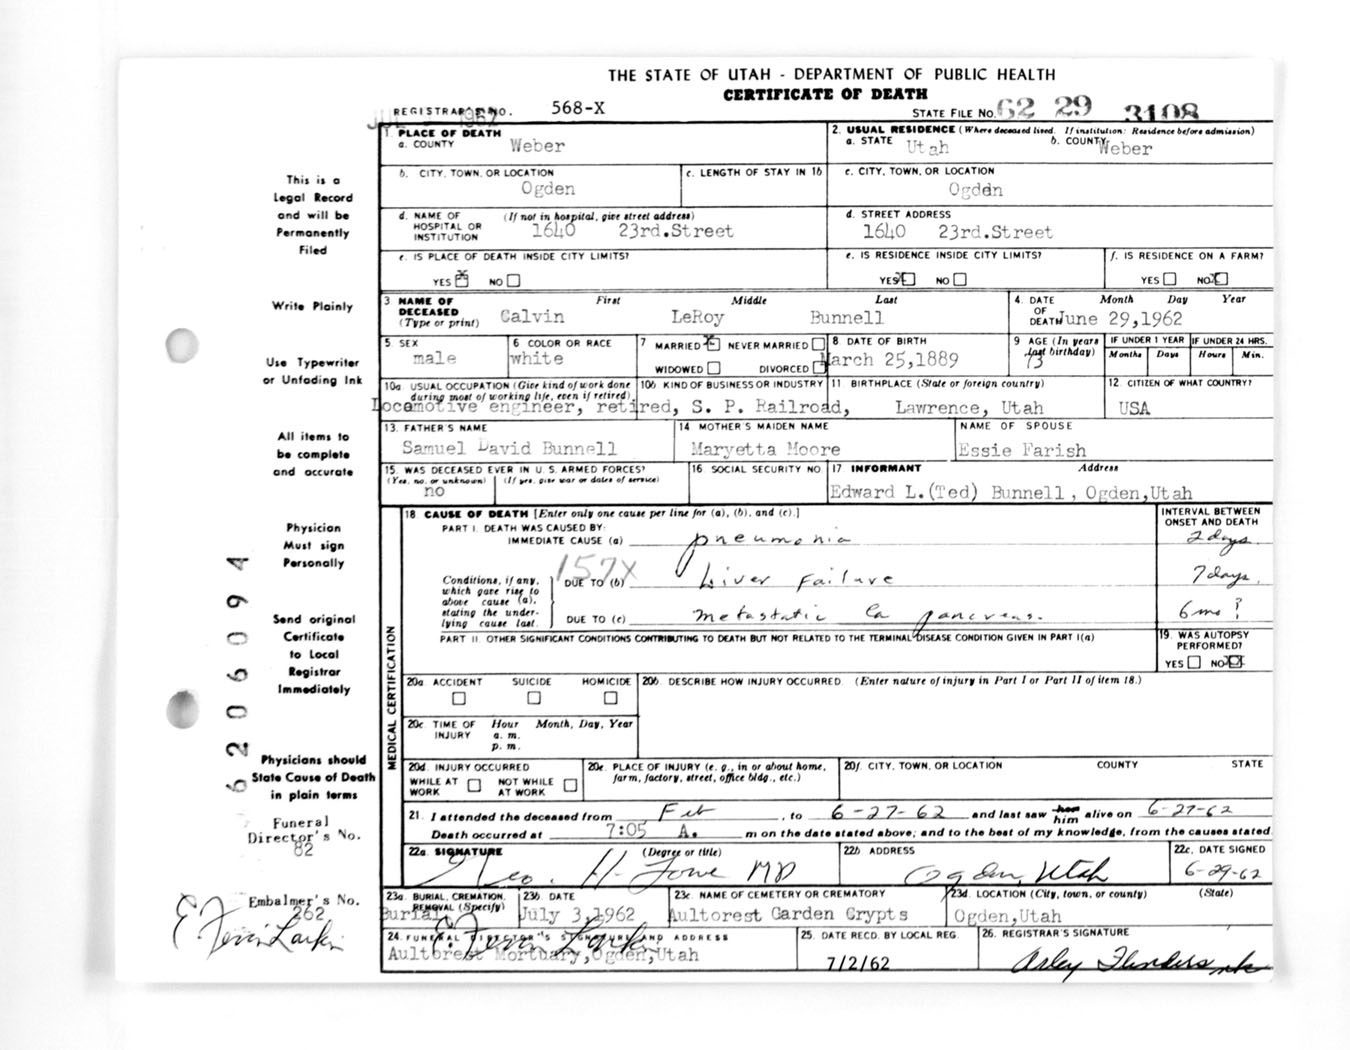 THE STATE OF UTAH - DEPARTMENT OF PUBLIC HEALTH
CERTIFICATE OF DEATH
REGISTRAR'S NO. 568-X
STATE FILE NO. 62 29 3108
JUL 1962
1. PLACE OF DEATH
a. COUNTY Weber
2. USUAL RESIDENCE (Where deceased lived. If institution: Residence before admission)
a. STATE Utah b. COUNTY Weber
b. CITY, TOWN, OR LOCATION Ogden
c. LENGTH OF STAY IN 1b
c. CITY, TOWN, OR LOCATION Ogden
d. NAME OF HOSPITAL OR INSTITUTION (If not in hospital, give street address) 1640 23rd.Street
d. STREET ADDRESS 1640 23rd.Street
e. IS PLACE OF DEATH INSIDE CITY LIMITS? YES X NO
e. IS RESIDENCE INSIDE CITY LIMITS? YES X NO
f. IS RESIDENCE ON A FARM? YES NO X
3 NAME OF DECEASED (Type or print) First Middle Last
Calvin LeRoy Bunnell
4. DATE OF DEATH Month Day Year
June 29,1962
5. SEX male
6 COLOR OR RACE white
7 MARRIED X NEVER MARRIED
WIDOWED DIVORCED
8. DATE OF BIRTH March 25,1889
9 AGE (In years last birthday) 73
IF UNDER 1 YEAR Months Days
IF UNDER 24 HRS. Hours Min.
10a. USUAL OCCUPATION (Give kind of work done during most of working life, even if retired)
10b. KIND OF BUSINESS OR INDUSTRY
Locomotive engineer, retired, S. P. Railroad,
11. BIRTHPLACE (State or foreign country) Lawrence, Utah
12. CITIZEN OF WHAT COUNTRY? USA
13. FATHER'S NAME Samuel David Bunnell
14 MOTHER'S MAIDEN NAME Maryetta Moore
NAME OF SPOUSE Essie Farish
15. WAS DECEASED EVER IN U.S. ARMED FORCES?
(Yes, no, or unknown) (If yes, give war or dates of service)
no
16 SOCIAL SECURITY NO.
17 INFORMANT Address
Edward L.(Ted) Bunnell, Ogden,Utah
MEDICAL CERTIFICATION
18 CAUSE OF DEATH [Enter only one cause per line for (a), (b), and (c).]
INTERVAL BETWEEN ONSET AND DEATH
PART I. DEATH WAS CAUSED BY:
IMMEDIATE CAUSE (a) pneumonia 2 days
157X
Conditions, if any, which gave rise to above cause (a), stating the underlying cause last.
DUE TO (b) Liver Failure 7 days
DUE TO (c) metastatic Ca pancreas. 6 mo ?
PART II. OTHER SIGNIFICANT CONDITIONS CONTRIBUTING TO DEATH BUT NOT RELATED TO THE TERMINAL DISEASE CONDITION GIVEN IN PART I(a)
19. WAS AUTOPSY PERFORMED?
YES NO X
20a. ACCIDENT SUICIDE HOMICIDE
20b. DESCRIBE HOW INJURY OCCURRED. (Enter nature of injury in Part I or Part II of item 18.)
20c. TIME OF INJURY Hour Month, Day, Year
a. m.
p. m.
20d. INJURY OCCURRED
WHILE AT WORK NOT WHILE AT WORK
20e. PLACE OF INJURY (e. g., in or about home, farm, factory, street, office bldg., etc.)
20f. CITY, TOWN, OR LOCATION COUNTY STATE
21. I attended the deceased from Feb , to 6-27-62 and last saw her him alive on 6-27-62
Death occurred at 7:05 A. m on the date stated above; and to the best of my knowledge, from the causes stated.
22a. SIGNATURE (Degree or title)
Geo. H. Lowe MD
22b. ADDRESS Ogden, Utah
22c. DATE SIGNED 6-29-62
23a. BURIAL, CREMATION, REMOVAL (Specify) Burial
23b. DATE July 3,1962
23c. NAME OF CEMETERY OR CREMATORY Aultorest Garden Crypts
23d. LOCATION (City, town, or county) (State)
Ogden,Utah
24. FUNERAL DIRECTOR'S SIGNATURE AND ADDRESS
E. Ferrin Larkin
Aultorest Mortuary,Ogden,Utah
25. DATE RECD. BY LOCAL REG. 7/2/62
26. REGISTRAR'S SIGNATURE
Arley Flinders
This is a
Legal Record
and will be
Permanently
Filed
Write Plainly
Use Typewriter
or Unfading Ink
All items to
be complete
and accurate
Physician
Must sign
Personally
Send original
Certificate
to Local
Registrar
Immediately
Physicians should
State Cause of Death
in plain terms
Funeral
Director's No.
82
Embalmer's No.
262
E Ferrin Larkin
6206094